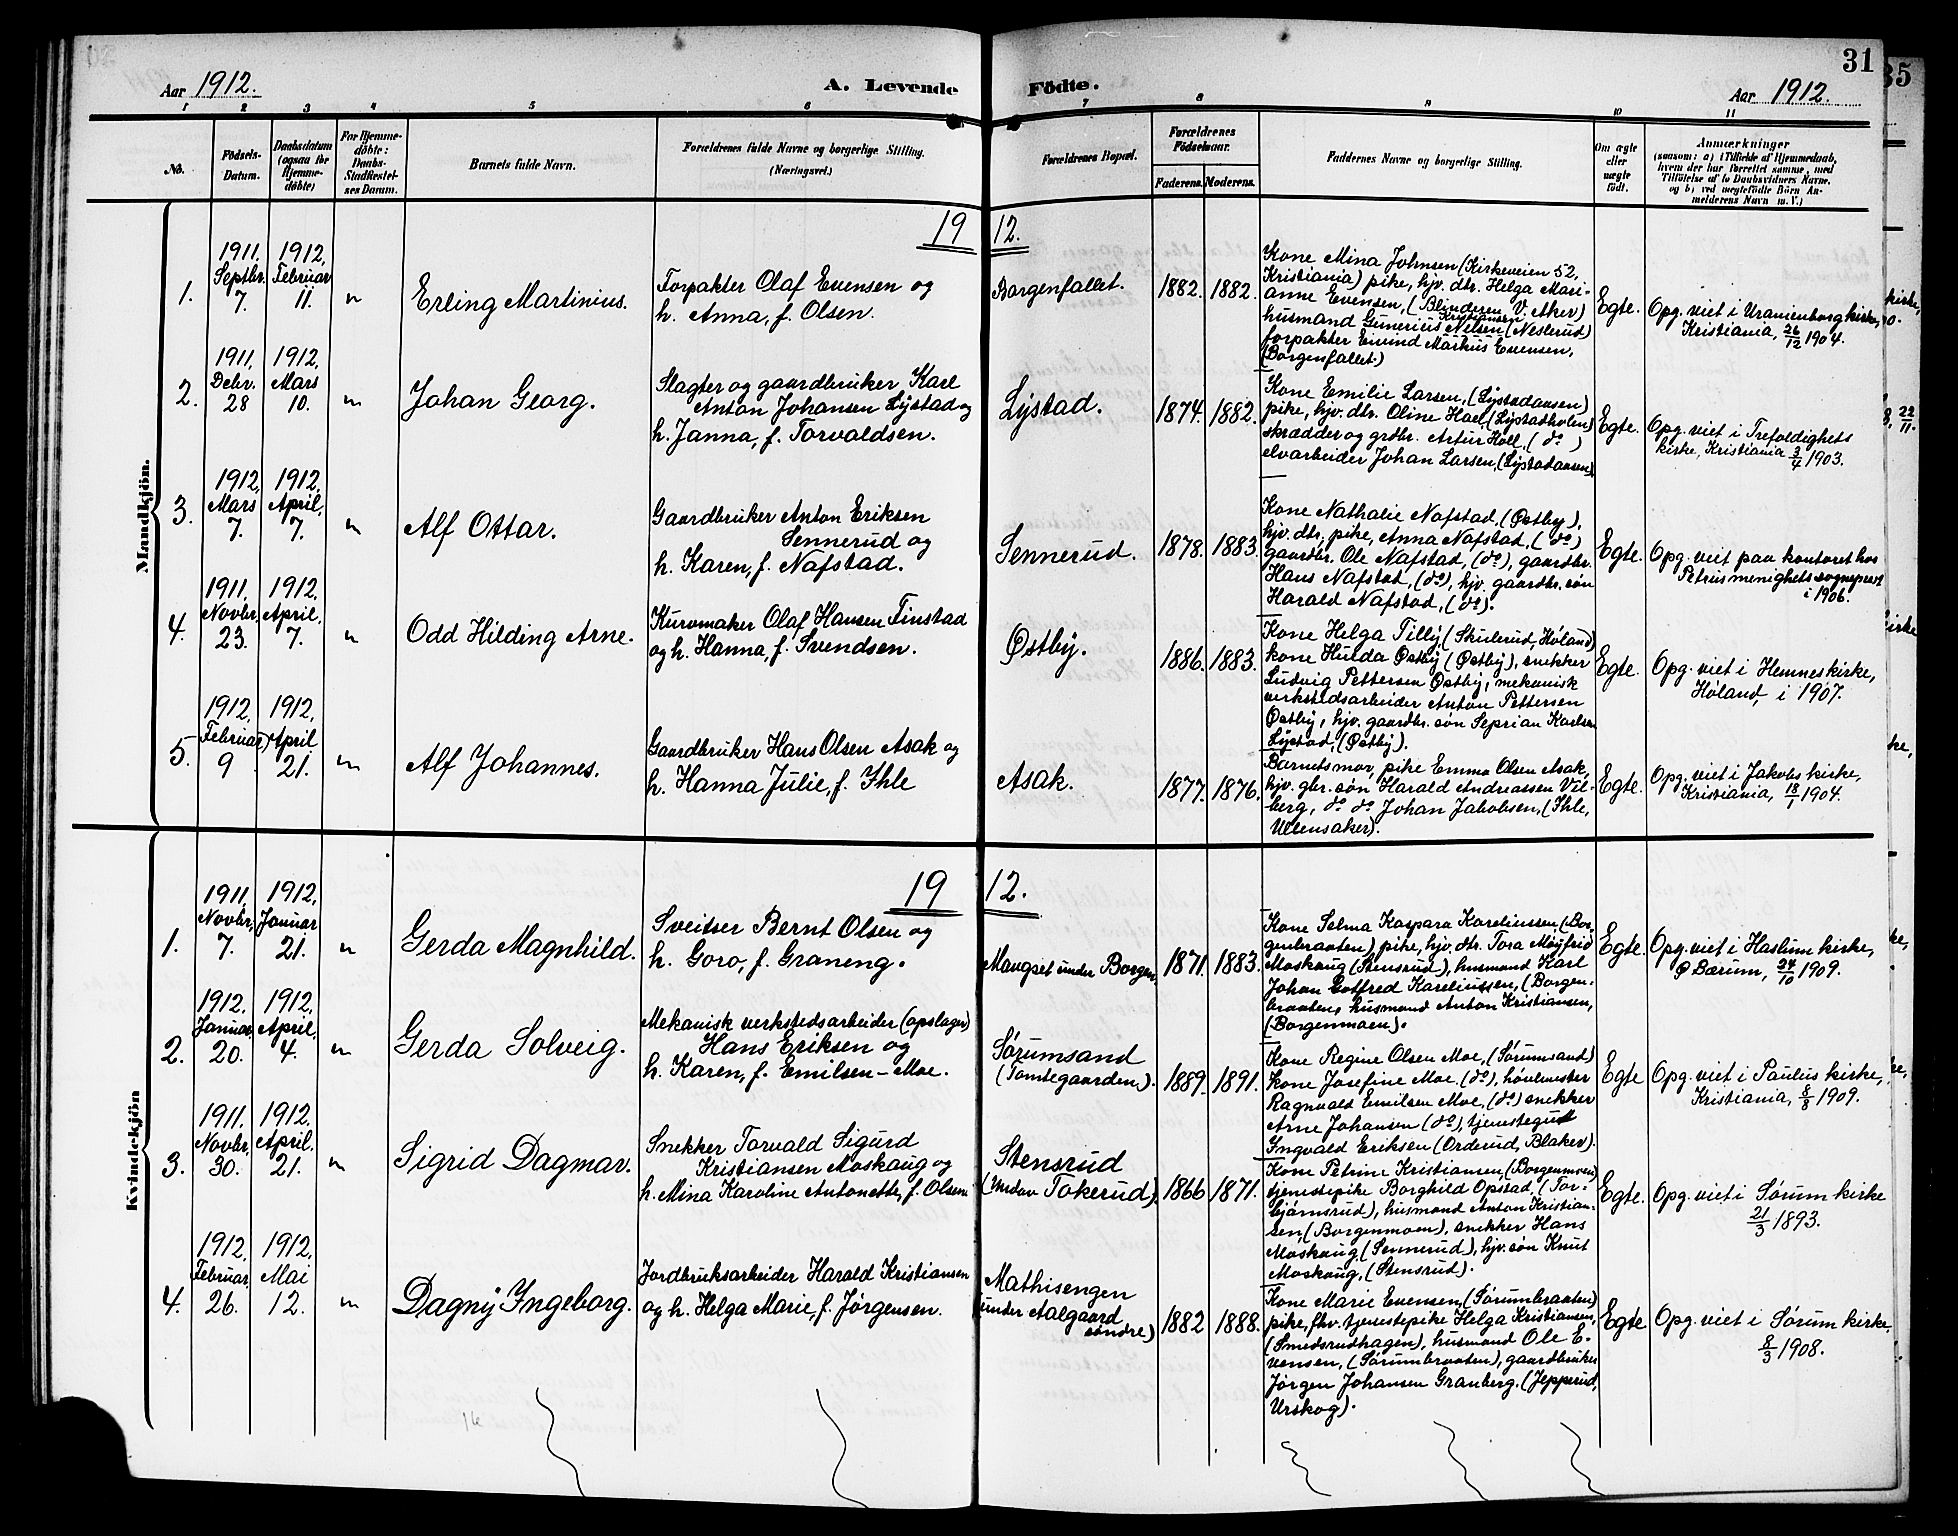 31
35
Aar 1912.
A. Levende
Födte.
Aar 1912.
1 2 3 4 5 6 7 8 9 10 11
No.
Födsels-
Datum.
Daabsdatum
(ogsaa for
Hjemme-
döbte)
For Hjemme-
döbte:
Daabs-
Stadfæstel-
ses Datum.
Barnets fulde Navn.
Forældrenes fulde Navne og borgerlige Stilling.
(Næringsvei.)
Forældrenes Bopæl.
Forældrenes
Födselsaar.
Faderens.
Moderens.
Faddernes Navne og borgerlige Stilling.
Om ægte
eller
uægte
födt.
Anmærkninger
(saasom: a) i Tilfælde af Hjemmedaab,
hvem der har forrettet samme, med
Tilföielse af to Daabsvidners Navne,
og b) ved uægtefödte Börn An-
melderens Navn m. V.)
Mandkjön.
19 12.
1.
1911.
Septbr.
7.
1912.
Februar
11.
"
Erling Martinius.
Forpakter Olaf Evensen og
h. Anna, f. Olsen.
Borgenfallet.
1882.
1882.
Kone Mina Johnsen (Kirkeveien 52,
Kristiania) pike, hjv. dtr. Helga Mari-
anne Evensen, (Blinderen V. Aker)
Kristiansen
husmand Gunerius Nelsen (Neslerud)
forpakter Eivind Markus Evensen,
(Borgenfallet.)
Egte.
Opg. viet i Uranienborg kirke,
Kristiania, 26/12 1904.
2.
1911.
Debr.
28
1912.
Mars
10.
"
Johan Georg.
Slagter og gaardbruker Karl
Anton Johansen Lystad og
h. Janna, f. Torvaldsen.
Lystad.
1874.
1882.
Kone Emilie Larsen, (Lystadaasen)
pike, hjv. dtr. Oline Hael (Lystadholen)
skrædder og grdbr. Artur Holl, (do)
elvarbeider Johan Larsen, (Lystadaasen)
Egte.
Opg. viet i Trefoldighets
kirke, Kristiania 3/4 1903.
3.
1912.
Mars
7.
1912.
April.
7.
"
Alf Ottar.
Gaardbruker Anton Eriksen
Sennerud og
h. Karen, f. Nafstad.
Sennerud.
1878.
1883.
Kone Nathalie Nafstad, (Østby),
hjv. dtr., pike, Anna Nafstad, (do)
gaardbr. Ole Nafstad, (do), gaardbr.
Hans Nafstad, (do), hjv. gaardbr. søn
Harald Nafstad, (do).
Egte.
Opg. viet paa kontoret hos
Petrus menighets sogneprest
i 1906.
4.
1911.
Novbr.
23.
1912.
April.
7.
"
Odd Hilding Arne.
Kurvmaker Olaf Hansen Finstad
og h. Hanna, f. Svendsen.
Østby.
1886.
1883.
Kone Helga Tilly (Skulerud, Høland)
kone Hulda Østby (Østby), snekker
Ludvig Pettersen Østby, mekanisk
verkstedsarbeider Anton Pettersen
Østby, hjv. gaardbr. søn Seprian Karlsen
Lystad, (Østby).
Egte.
Opg. viet i Hemnes kirke,
Høland, i 1907.
5.
1912.
Februar
9
1912.
April
21.
"
Alf Johannes.
Gaardbruker Hans Olsen Asak og
h. Hanna Julie, f. Ihle
Asak.
1877.
1876.
Barnets mor, pike Emma Olsen Asak,
hjv. gbr. søn Harald Andreassen Vil-
berg, do do Johan Jakobsen, (Ihle,
Ullensaker).
Egte.
Opg. viet i Jakobs kirke,
Kristiania, 18/1 1904.
Kvindekjön
19 12.
1.
1911.
Novbr.
7.
1912.
Januar
21.
"
Gerda Magnhild.
Sveitser Bernt Olsen og
h. Goro, f. Graneng.
Maugset under Borgen.
1871.
1883.
Kone Selma Kaspara Kareliussen (Bor-
genbraaten) pike, hjv. dtr. Tora Møyfrid
Moskaug (Stensrud), husmand Karl
Johan Gotfred Kareliussen, (Borgen-
braaten, husmand Anton Kristiansen,
(Borgenmoen).
Egte.
Opg. viet i Haslum kirke,
Ø Bærum, 24/10 1909.
2.
1912.
Januar.
20.
1912.
April.
4.
"
Gerda Solveig.
Mekanisk verkstedsarbeider (opslager)
Hans Eriksen og
h. Karen, f. Emilsen-Moe.
Sørumsand
(Tomtegaarden).
1889.
1891.
Kone Regine Olsen Moe, (Sørumsand)
kone Josefine Moe, (do), høvlmester
Ragnvald Emilsen Moe, (do) snekker
Arne Johansen (do), tjenestegut
Ingvald Eriksen (Orderud, Blaker).
Egte
Opg. viet i Paulus kirke,
Kristiania, 8/8 1909.
3.
1911.
Novbr.
30.
1912.
April.
21.
"
Sigrid Dagmar.
Snekker Torvald Sigurd
Kristiansen Moskaug og
h. Mina Karoline Antonette, f. Olsen
Stensrud
(Under Tokerud).
1866
1871.
Kone Petrine Kristiansen, (Borgenmoen)
tjenestepike Borghild Opstad, (Tor-
bjørnsrud), husmand Anton Kristian-
sen, (Borgenmoen), snekker Hans
Moskaug, (Sennerud), hjv. søn Knut
Moskaug, (Stensrud).
Egte.
Opg. viet i Sørum kirke
21/3 1893.
4.
1912.
Februar.
26.
1912.
Mai
12.
"
Dagny Ingeborg.
Jordbruksarbeider Harald Kristiansen
og h. Helga Marie, f. Jørgensen.
Mathisengen
(under Aalgaard
søndre)
1882
1888.
Kone Marie Evensen, (Sørumbraaten)
pike, fhv. tjenestepike Helga Kristiansen,
(Smedsrudhagen), husmand Ole E-
vensen, (Sørumbraaten), gaardbruker
Jørgen Johansen Granberg, (Jepperud,
Urskog).
Egte
Opg. viet i Sørum kirke.
8/3 1908.